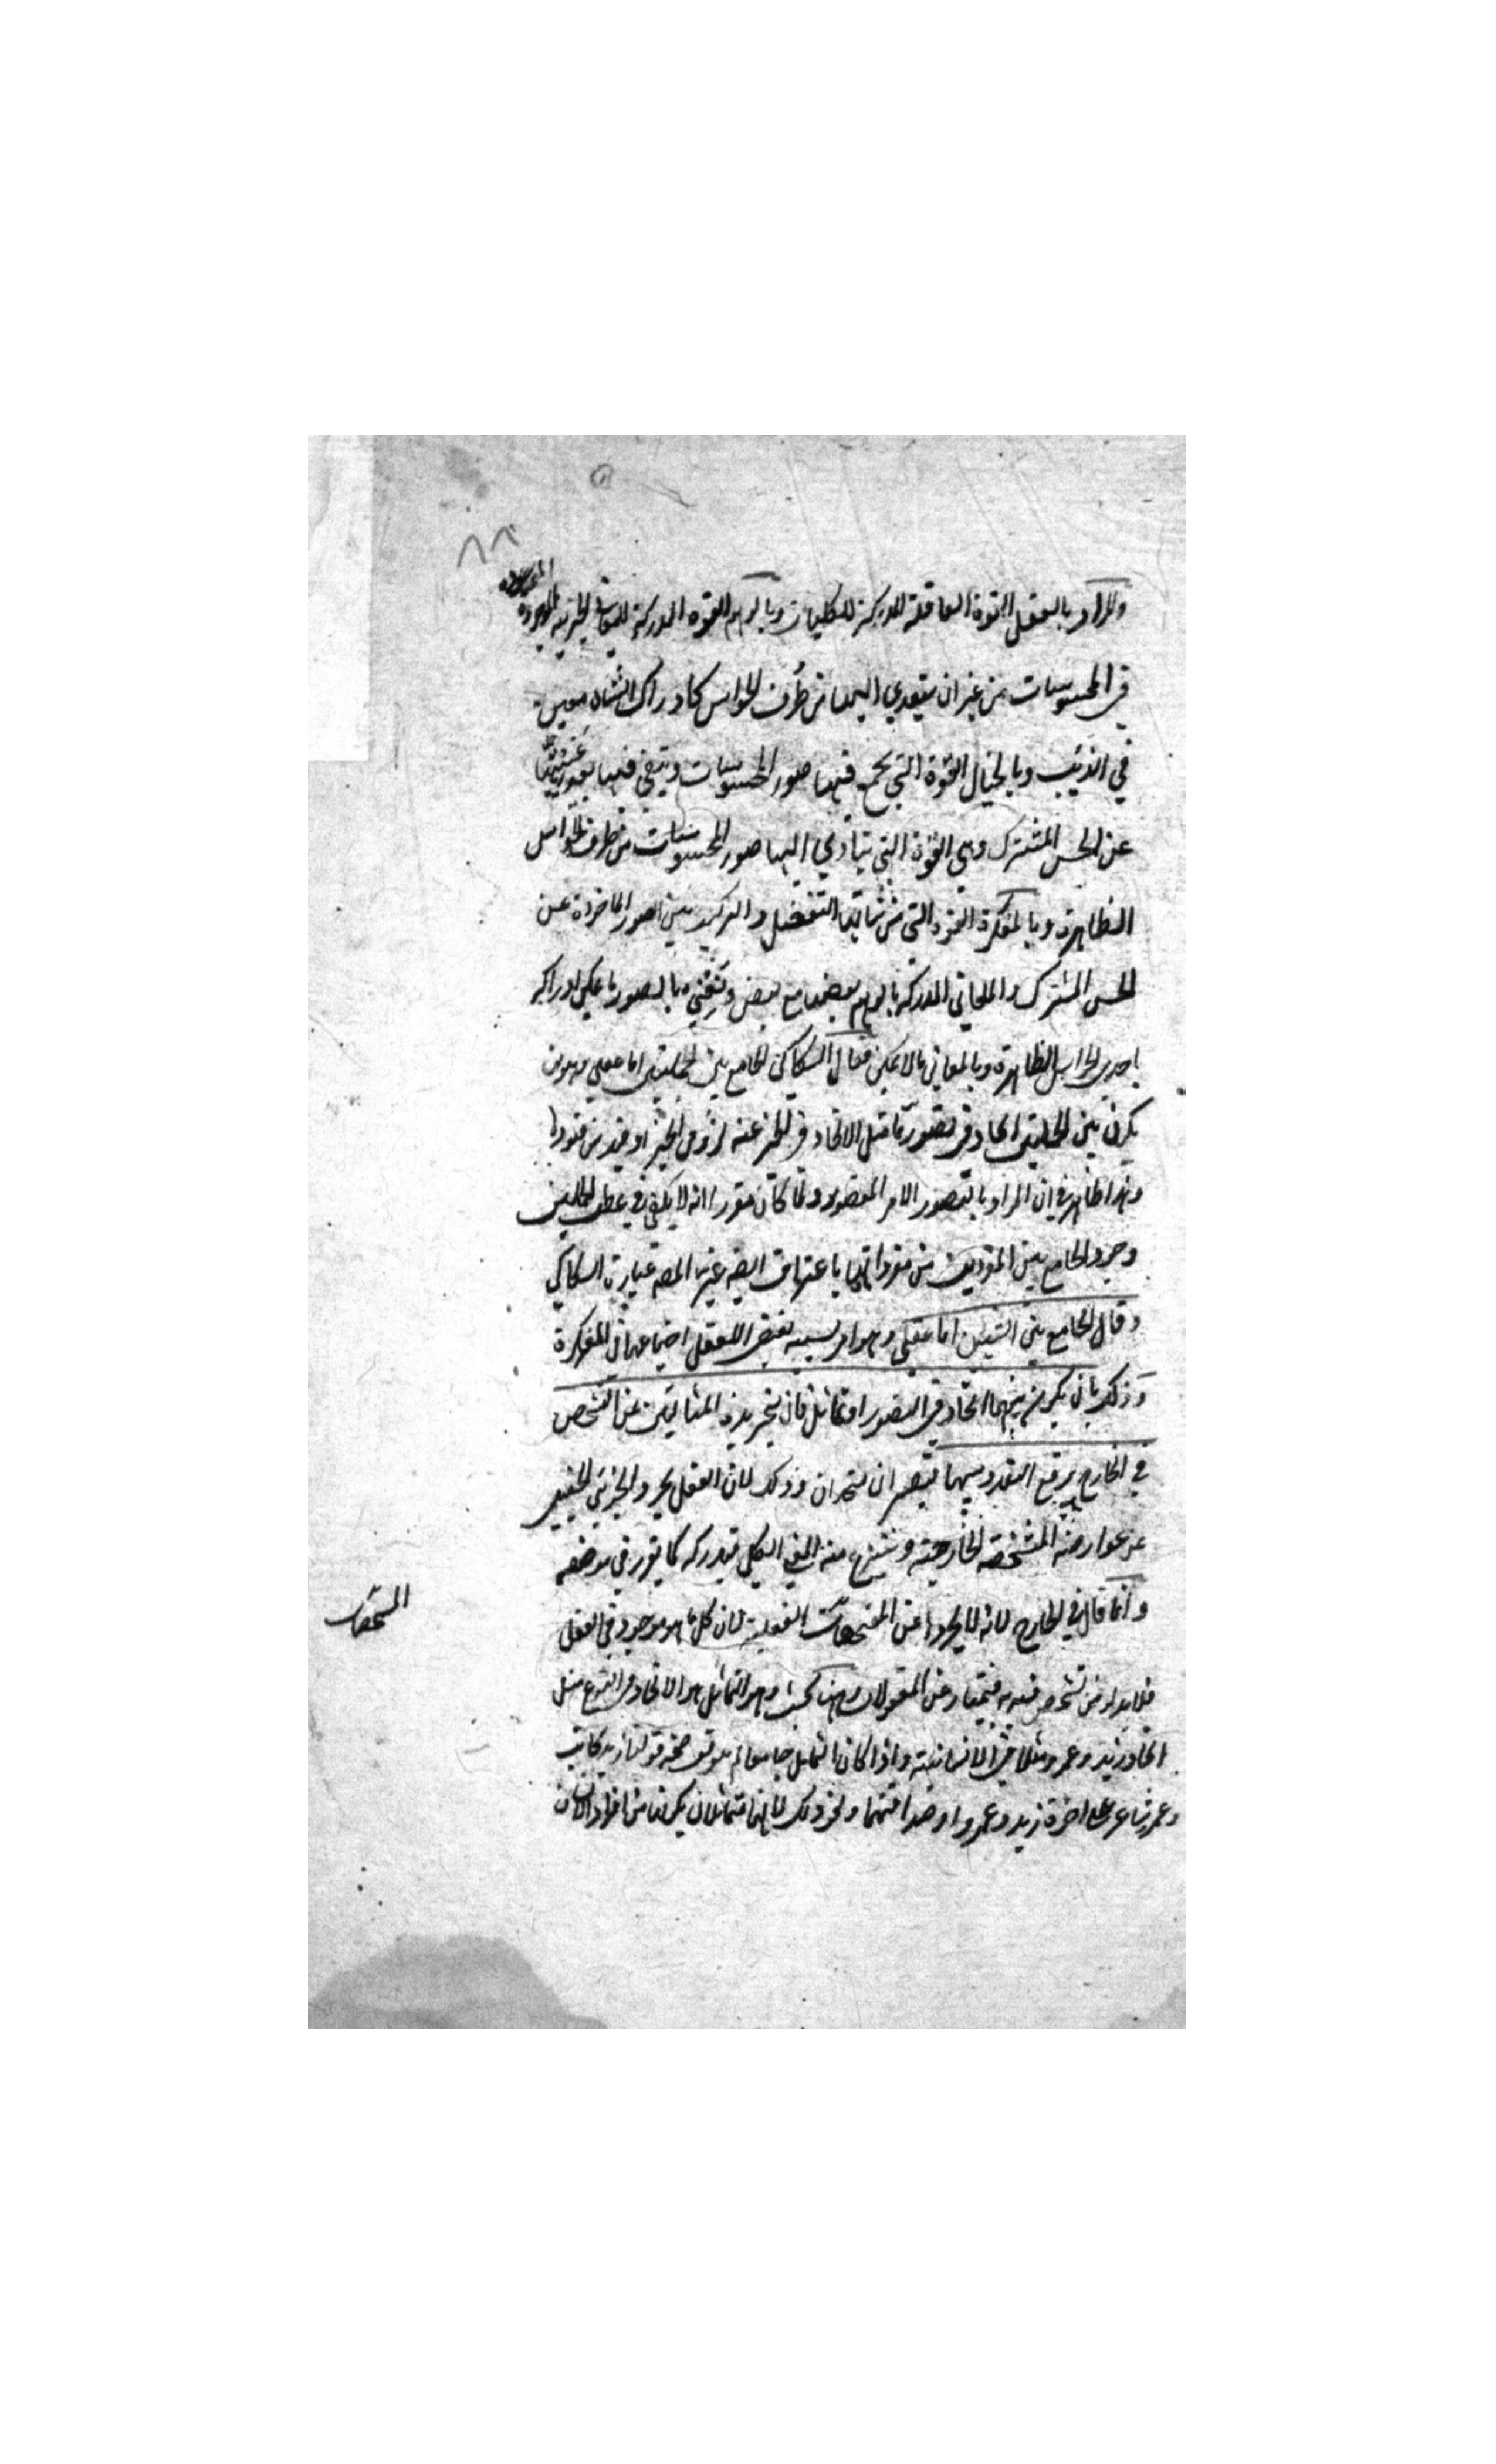 ٨٨
والمراد بالعقل القوة العاقلة المدركة للكليات وبالوهم القوة المدركة للمعاني الجزئية الموجودة
في المحسوسات من غير ان يتعدي اليها من طُرف الحواس كادراك الشاة معنى
في الذئب وبالخيال القوة التي تجمع فيها صور المحسوسات وتبقي فيها بعد غيبتها
عن الحس المشترك وهي القوة التي يتأدي اليها صور المحسوسات من طرف الحواس
الظاهرة وبالمفكرة القوة التي من شانها التفصيل والتركيب بين الصور الماخوذة عن
الحس المشترك والمعاني المدركة بالوهم بعضها مع بعض ونعني بالصور ما يمكن ادراكه
باحدي الحواس الظاهرة وبالمعاني ما لا يمكن فقال السكاكي الجامع بين الجملتين اما عقلي وهو ان
يكون بين الجملتين اتحاد في تصور ما مثل الاتحاد في المخبر عنه او في الخبر او قيد من قيودها
وهذا ظاهر في ان المراد بالتصور الامر المتصور ولما كان مقررا انه لا يكفي في عطف الجملتين
وجود الجامع بين المفردين من مفرداتهما باعتراف ايضه غير المصه عبارة السكاكي
وقال الجامع بين الشيئين اما عقلي وهو امر بسببه يقتضي العقل اجتماعهما في المفكرة
وذلك بان يكون بينهما اتحاد في التصور او تماثل فان تجريده المثلين عن التشخص
في الخارج يرفع التعدد بينهما فيصير ان متحدان وذلك لان العقل يجرد الجزئي الحقيقي
عن عوارضه المشخصة الخارجية وينتزع منه المعني الكلي فيدركه كما تقرر في موضعه
وانما قال في الخارج لانه لا يجردها عن المشخصات العقلية لان كل ما هو موجود في العقل
المشخصات
فلا بد له من تشخص فيه به يمتاز عن المعقولات وههنا بحث وهو ان التماثل هو الاتحاد في النوع مثل
اتحاد زيد وعمرو مثلا في الانسانية واذا كان التماثل جامعا لم يتوقف صحة قولنا زيد كاتب
وعمرو شاعر على اخوة زيد وعمرو او صداقتهما ونحو ذلك لانهما متماثلان لكونهما من افراد الانسان